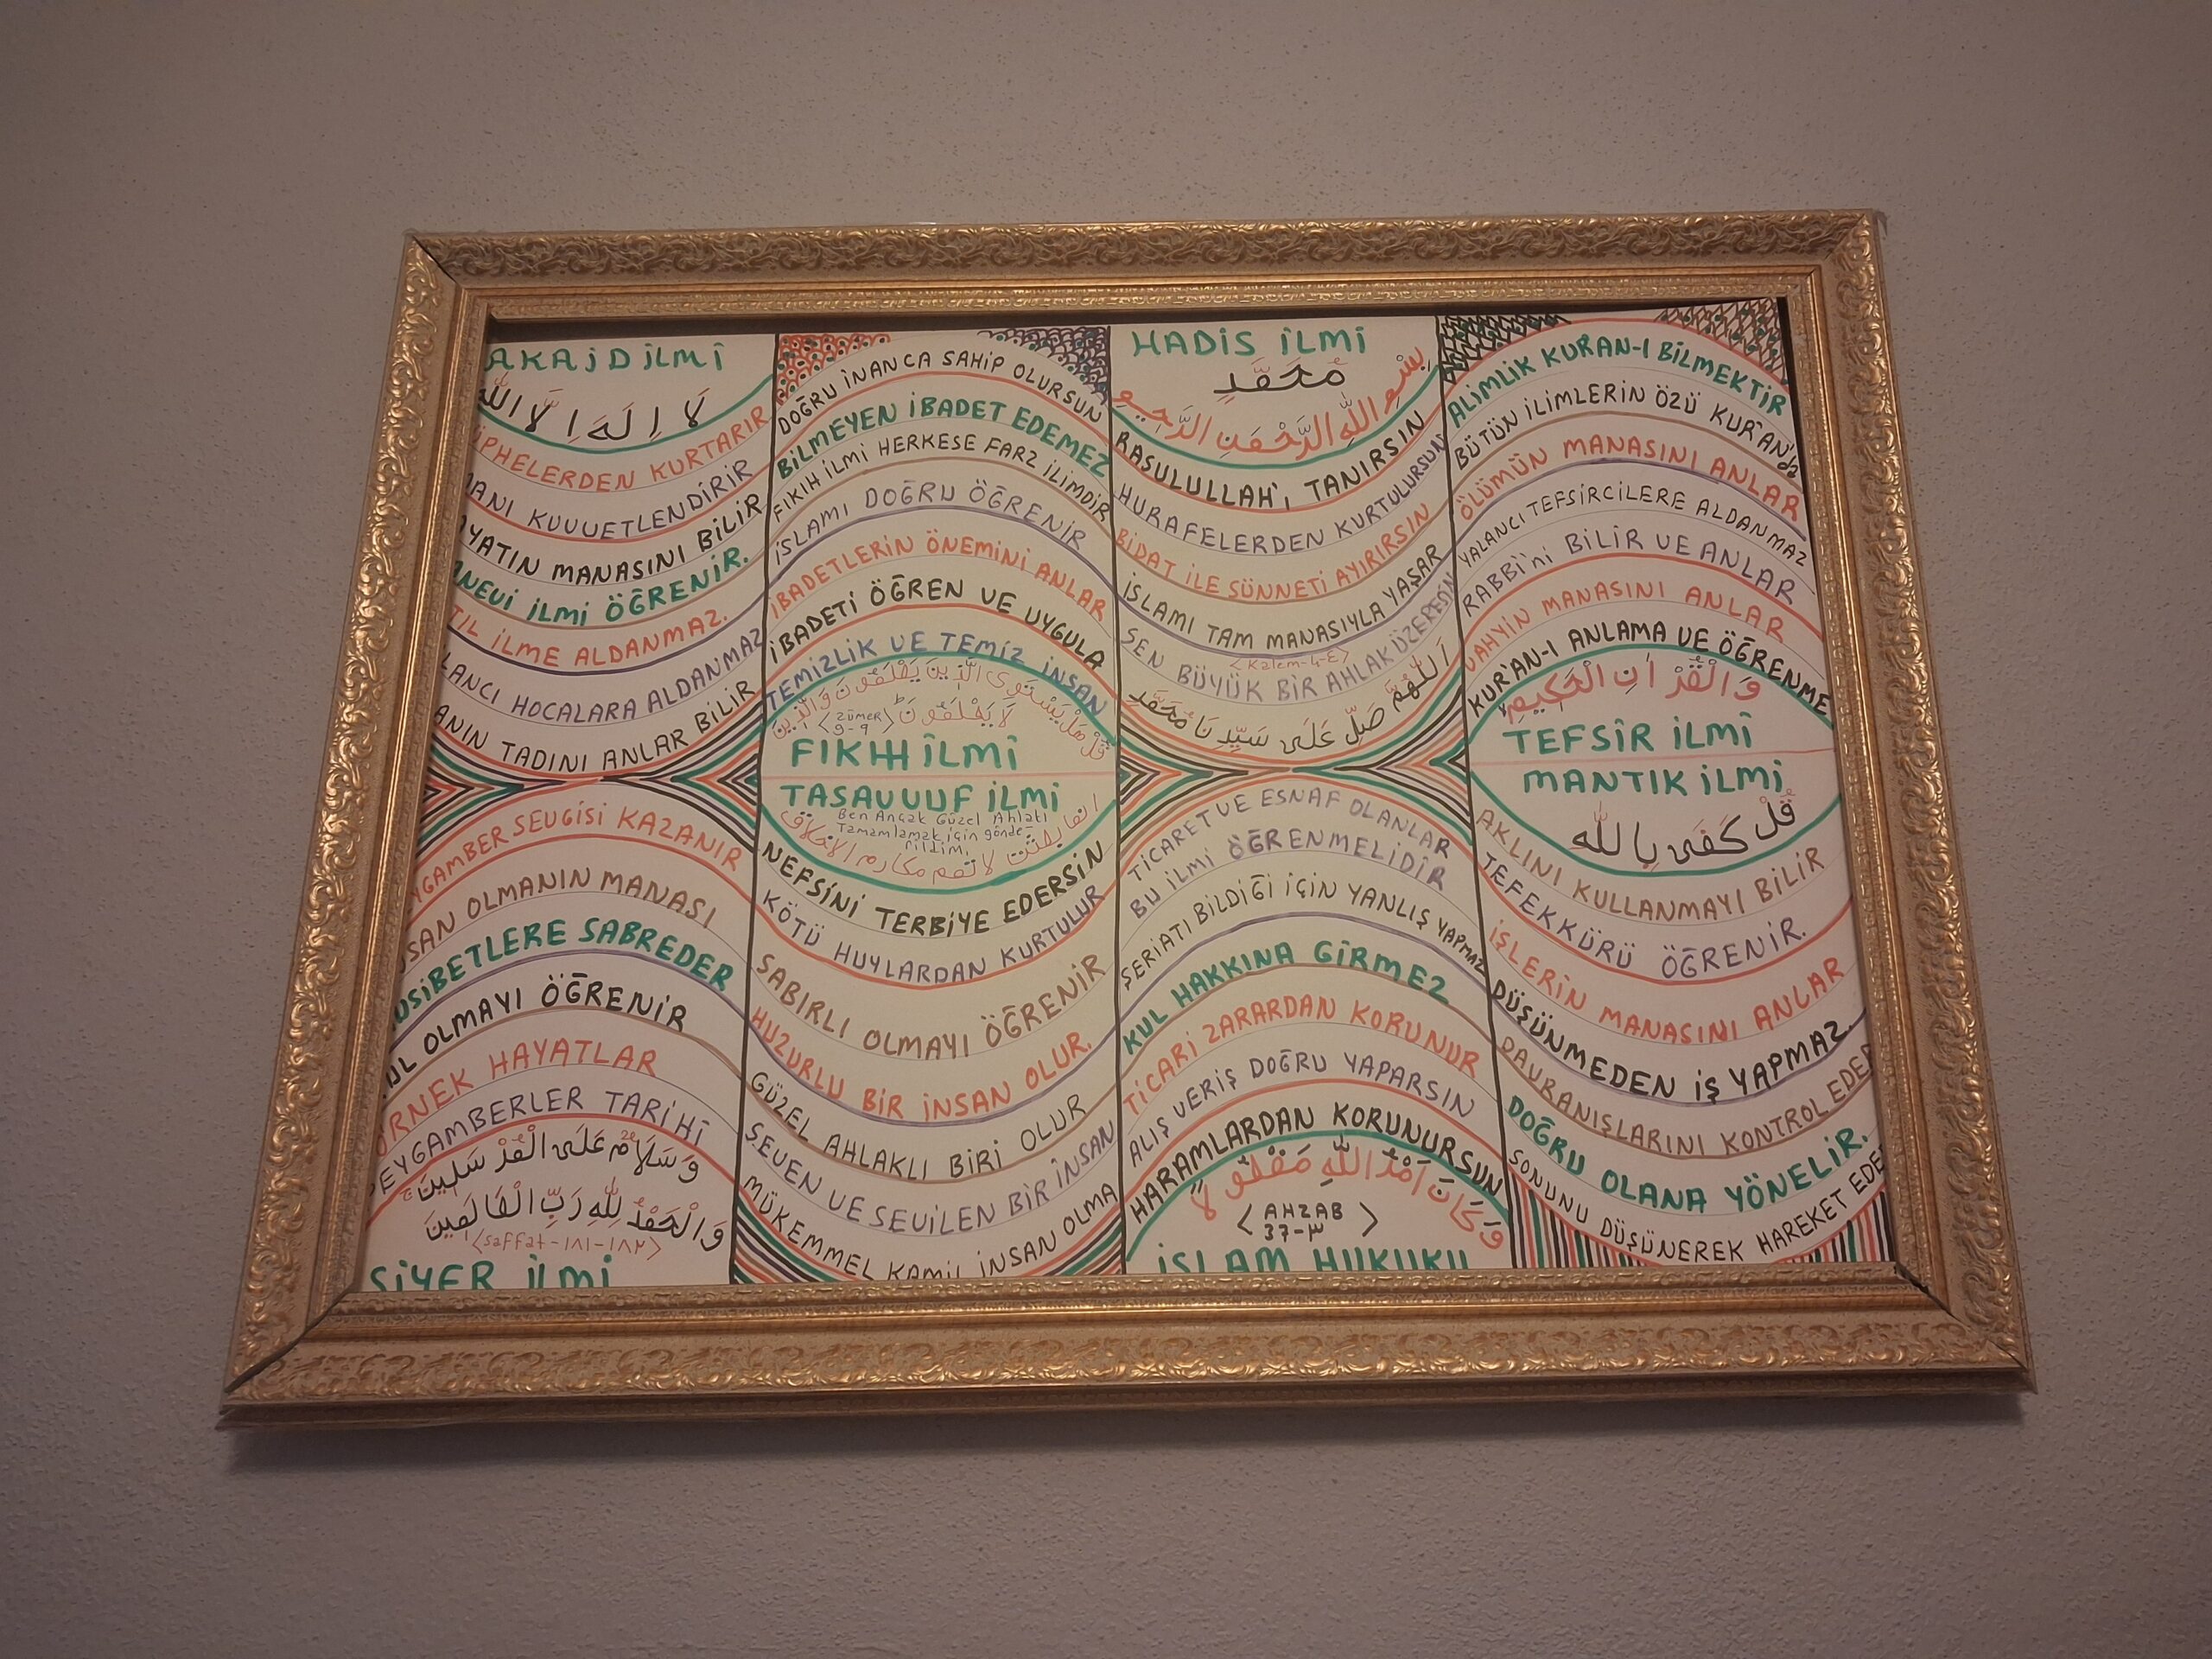 AKAİD İLMİ
لَا اِلَهَ اِلَّا اللّٰه
PHELERDEN KURTARIR
KUVVETLENDİRİR
MANASINI BİLİR
İLMİ ÖĞRENİR.
İLME ALDANMAZ.
HOCALARA ALDANMAZ
TADINI ANLAR BİLİR
DOĞRU İNANCA SAHİP OLURSUN
BİLMEYEN İBADET EDEMEZ
FIKIH İLMİ HERKESE FARZ İLİMDİR
İSLAMI DOĞRU ÖĞRENİR
İBADETLERİN ÖNEMİNİ ANLAR
İBADETİ ÖĞREN VE UYGULA
TEMİZLİK VE TEMİZ İNSAN
قُلْ هَلْ يَسْتَوِى الَّذِينَ يَعْلَمُونَ وَالَّذِينَ
لَا يَعْلَمُونَ
<ZÜMER
9-٩>
FIKIH İLMİ
HADİS İLMİ
مُحَمَّدٍ
بِسْمِ اللّٰهِ الرَّحْمَنِ الرَّحِيمِ
RASULULLAH'ı TANIRSIN
HURAFELERDEN KURTULURSUN
BİDAT İLE SÜNNETİ AYIRIRSIN
İSLAMI TAM MANASIYLA YAŞAR
SEN BÜYÜK BİR AHLAK ÜZERESİN
<Kalem-4-٤>
اَللّٰهُمَّ صَلِّ عَلَى سَيِّدِنَا مُحَمَّدٍ
ALİMLİK KURAN-I BİLMEKTİR
BÜTÜN İLİMLERİN ÖZÜ KUR'AN'da
ÖLÜMÜN MANASINI ANLAR
YALANCI TEFSİRCİLERE ALDANMAZ
RABBİ'ni BİLİR VE ANLAR
VAHYİN MANASINI ANLAR
KUR'AN-I ANLAMA VE ÖĞRENME
وَالْقُرْاٰنِ الْحَكِيمِ
TEFSİR İLMİ
PEYGAMBER SEVGİSİ KAZANIR
OLMANIN MANASI
MUSİBETLERE SABREDER
OLMAYI ÖĞRENİR
ÖRNEK HAYATLAR
PEYGAMBERLER TARİHİ
وَسَلَامٌ عَلَى الْمُرْسَلِينَ
وَالْحَمْدُ لِلّٰهِ رَبِّ الْعَالَمِينَ
<saffat-١٨١-١٨٢>
SİYER İLMİ
TASAVVUF İLMİ
Ben Ancak Güzel Ahlakı
Tamamlamak için gönde-
rildim.
انما بعثت لاتمم مكارم الاخلاق
NEFSİNİ TERBİYE EDERSİN
KÖTÜ HUYLARDAN KURTULUR
SABIRLI OLMAYI ÖĞRENİR
HUZURLU BİR İNSAN OLUR.
GÜZEL AHLAKLI BİRİ OLUR
SEVEN VE SEVİLEN BİR İNSAN
MÜKEMMEL KAMİL İNSAN OLMA
TİCARET VE ESNAF OLANLAR
BU İLMİ ÖĞRENMELİDİR
ŞERİATI BİLDİĞİ İÇİN YANLIŞ YAPMAZ
KUL HAKKINA GİRMEZ
TİCARİ ZARARDAN KORUNUR
ALIŞ VERİŞ DOĞRU YAPARSIN
HARAMLARDAN KORUNURSUN
وَكَانَ اَمْرُ اللّٰهِ مَفْعُولًا
<AHZAB
37-٣>
İSLAM HUKUKU
MANTIK İLMİ
قُلْ كَفَى بِاللّٰهِ
AKLINI KULLANMAYI BİLİR
TEFEKKÜRÜ ÖĞRENİR.
İŞLERİN MANASINI ANLAR
DÜŞÜNMEDEN İŞ YAPMAZ.
DAVRANIŞLARINI KONTROL EDER
DOĞRU OLANA YÖNELİR.
SONUNU DÜŞÜNEREK HAREKET EDER